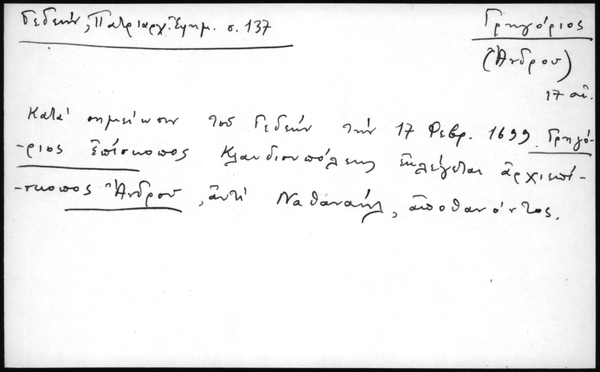 Γεδεών, Πατριαρχ. Εφημ. σ. 137
Γρηγόριος
(Ἄνδρου)
17 αἰ.
Κατά σημείωσιν τοῦ Γεδεών τήν 17 Φεβρ. 1699 Γρηγό-
-ριος ἐπίσκοπος Κλαυδιουπόλεως ἐκλέγεται ἀρχιεπί-
-σκοπος Ἄνδρου, ἀντί Ναθαναήλ, ἀποθανόντος.